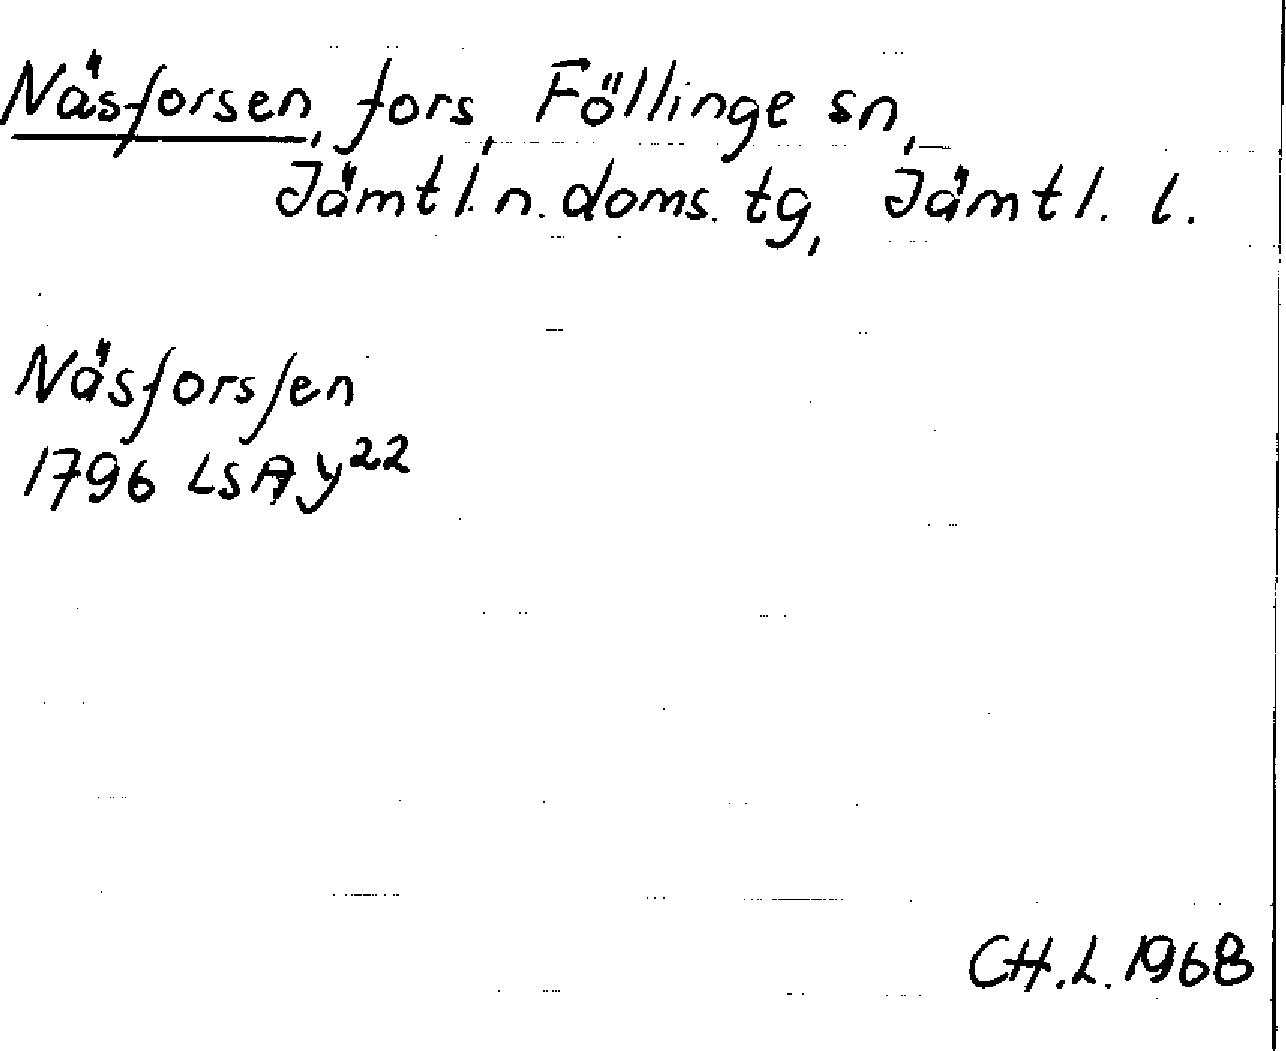 Näsforsen, fors, Föllinge sn,
Jämtl. n. doms. tg, Jämtl. l.
Näsforssen
1796 LSA Y²²
CH.L. 1968